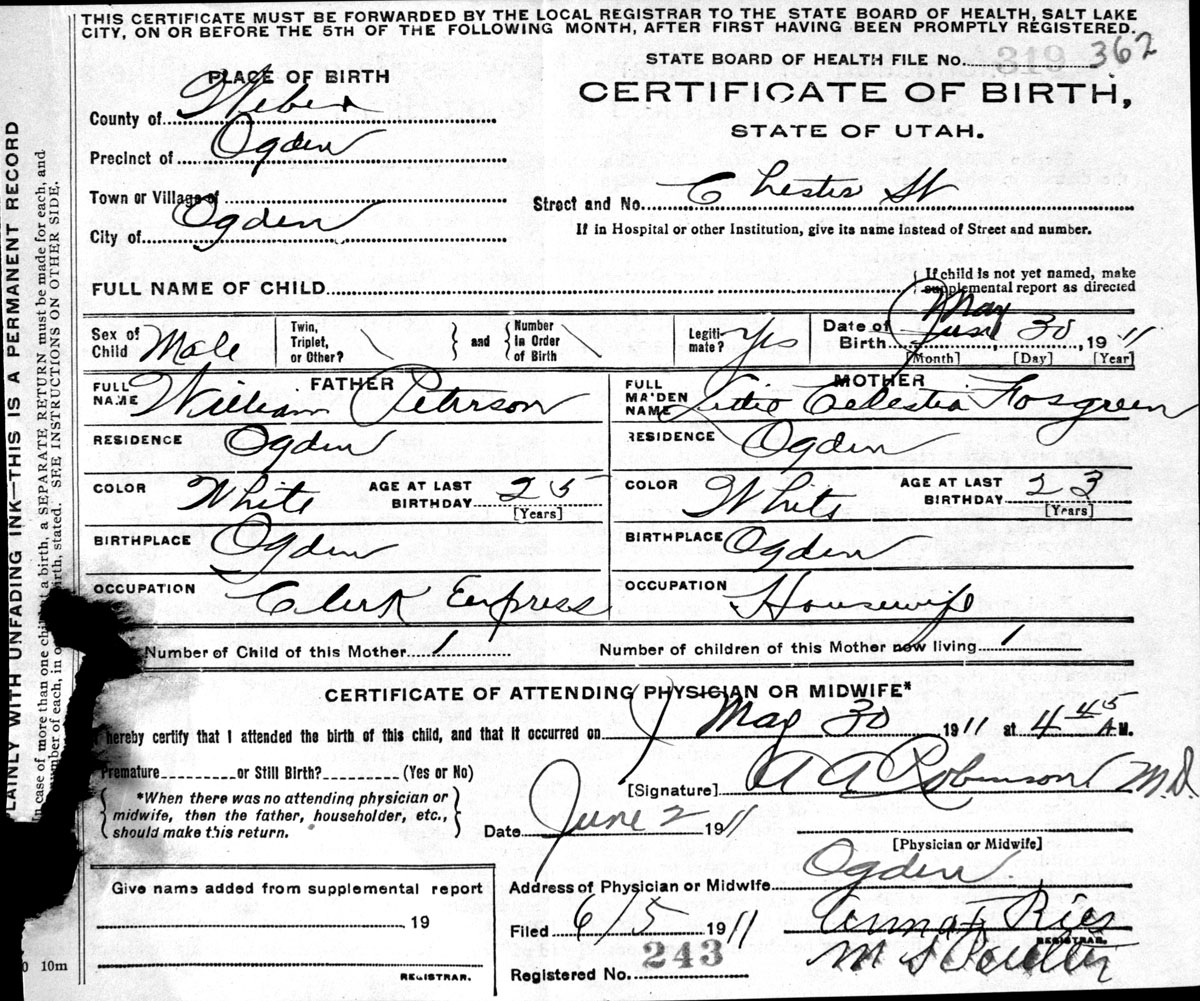 THIS CERTIFICATE MUST BE FORWARDED BY THE LOCAL REGISTRAR TO THE STATE BOARD OF HEALTH, SALT LAKE
CITY, ON OR BEFORE THE 5TH OF THE FOLLOWING MONTH, AFTER FIRST HAVING BEEN PROMPTLY REGISTERED.
STATE BOARD OF HEALTH FILE NO. 319 362
PLACE OF BIRTH
CERTIFICATE OF BIRTH,
STATE OF UTAH.
County of Weber
Precinct of Ogden
Town or Village of
Street and No. Chester St
City of Ogden
If in Hospital or other Institution, give its name instead of Street and number.
FULL NAME OF CHILD
If child is not yet named, make
supplemental report as directed
Sex of Child Male
Twin, Triplet, or Other? and Number in Order of Birth
Legiti-mate? Yes
Date of Birth May June 30 1911
[Month] [Day] [Year]
FATHER
FULL NAME William Peterson
MOTHER
FULL MAIDEN NAME Celestia Fosgreen
RESIDENCE Ogden
RESIDENCE Ogden
COLOR White AGE AT LAST BIRTHDAY 25
[Years]
COLOR White AGE AT LAST BIRTHDAY 23
[Years]
BIRTHPLACE Ogden
BIRTHPLACE Ogden
OCCUPATION Clerk Express
OCCUPATION Housewife
Number of Child of this Mother 1 Number of children of this Mother now living 1
CERTIFICATE OF ATTENDING PHYSICIAN OR MIDWIFE*
hereby certify that I attended the birth of this child, and that it occurred on May 30 1911 at 4 45 A.M.
Premature or Still Birth? (Yes or No)
[Signature] A A Robinson M.D.
*When there was no attending physician or
midwife, then the father, householder, etc.,
should make this return.
Date June 2 1911
[Physician or Midwife]
Give name added from supplemental report
19
REGISTRAR.
Address of Physician or Midwife Ogden
Filed 6/5 1911
REGISTRAR.
Registered No. 243
10m
LAINLY WITH UNFADING INK—THIS IS A PERMANENT RECORD
In case of more than one child at a birth, a SEPARATE RETURN must be made for each, and
number of each, in order of birth, stated. SEE INSTRUCTIONS ON OTHER SIDE.